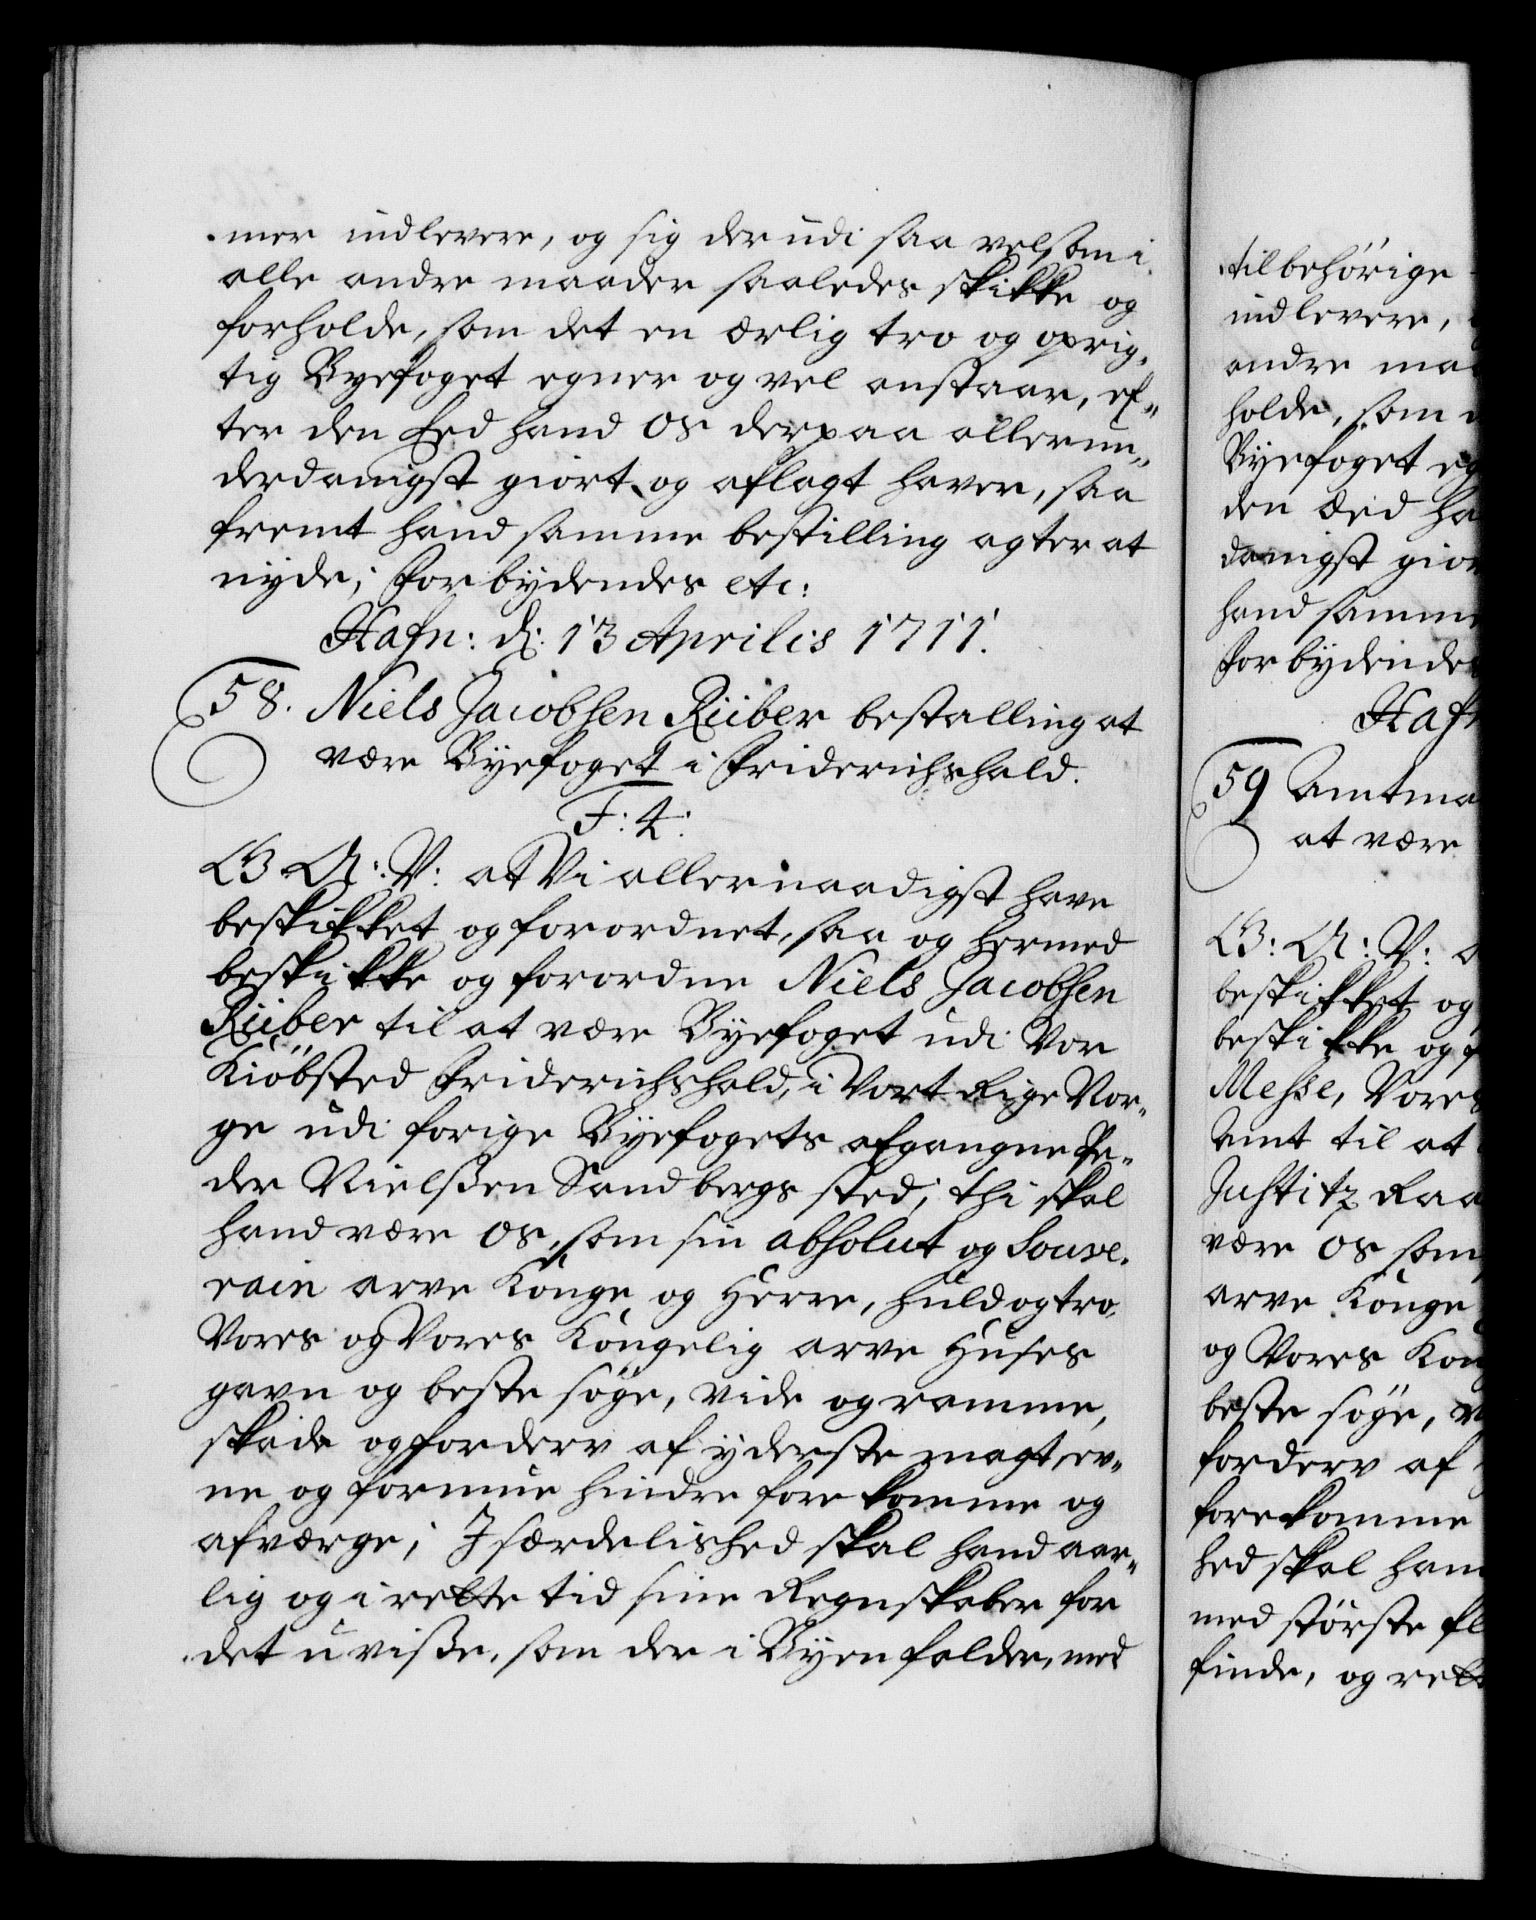 mer indlevere, og sig der udi saa velsom i
alle andre maader saaledes skikke og
forholde, som det en ærlig tro og oprig-
tig Byefoget egner og vel anstaar, ef-
ter den Eed hand os derpaa allerun-
derdanigst giort og aflagt haver, saa
fremt hand samme bestilling agter at
nyde; Forbydendes etc:
Hafn: d: 13 Aprilis 1711.
58. Niels Jacobsen Rüber bestalling at
være Byefoget i Friderichshald.
F: 4:
G A: V: at Vi allernaadigst have
beskikket og forordnet, saa og hermed
beskikke og forordne Niels Jacobsen
Rüber til at være Byefoget udi Vor
Kiöbsted Friderichshald, i Vort Rige Nor-
ge udi forige Byefogets afgangne Pe-
der Nielsßen Sandbergs sted; thi skal
hand være os, som sin absolut og Souve-
rain arve Konge og Herre, huld og tro,
Vores og Vores Kongelig arve Huses
gavn og beste söge, vide og ramme,
skade og forderv af yderste magt, ev-
ne og formue hindre forekomme og
afværge; Isærdelished skal hand aar-
lig og i rette tid sine Regnskaber for
det uvisße, som der i Byen falder, med
tilbehörige
indlevere,
andre maa
holde, som
Byefoget eg
den Æed ha
danigst gior
hand samme
Forbydendes
Hafn
59 Amtma
at være
G: A: V: a
beskikket og
beskikke og f
Mehse, Vores
Amt til at
Justitz Raa
være os som
arve Konge
og Vores Kon
beste söge, v
forderv af
forekomme
hed skal han
med störste fl
finde, og rett